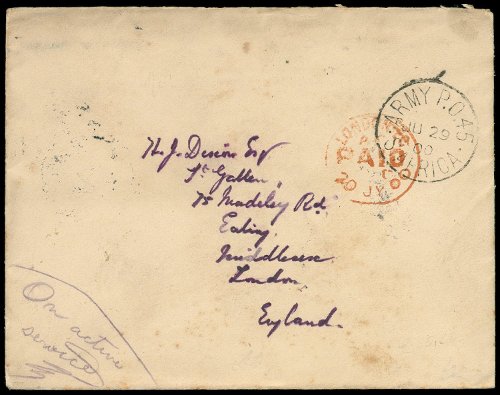 ARMY P.O. 45
JU 29
00
AFRICA
LONDON
PAID
20 JY 0
H.J. Esq
St Gallen,
75 Madeley Rd.
Ealing,
Middlesex
London.
England.
On active
service